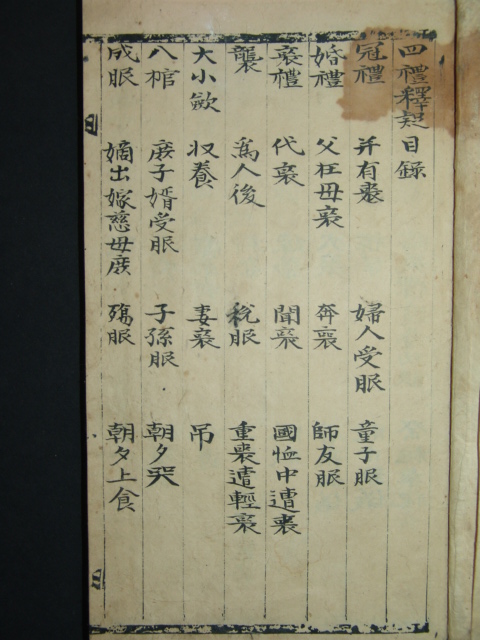 四禮釋疑目錄
冠禮 并有喪 婦人受服 童子服
婚禮 父在母喪 奔喪 師友服
喪禮 代喪 聞喪 國恤中遭喪
襲 爲人後 稅服 重喪遭輕喪
大小斂 収養 妻喪 吊
入棺 庶子婿受服 子孫服 朝夕哭
成服 嫡出嫁慈母庶 殤服 朝夕上食